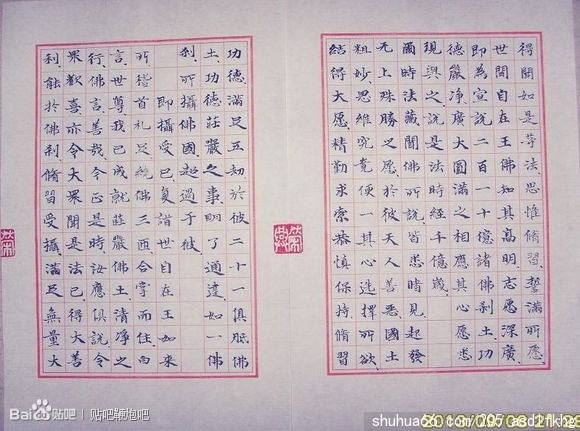 得聞如是等法、思惟脩習、誓滿所愿、
世間自在王佛知其高明、志愿深廣、
即為宣說二百一十億諸佛剎土功
德嚴淨、廣大圓滿之相、應其心愿、悉
現與之、說是法時、經千億歲、
爾時法藏聞佛所說、皆悉睹見、起發
无上殊勝之愿、於彼天人善惡、國土
粗妙、思維究竟、便一其心、选擇所欲、
結得大愿、精勤求索、恭慎保持、脩習
功德、滿足五劫、於彼二十一俱胝佛
土、功德莊嚴之事、明了通達、如一佛
剎、所攝佛國、超過于彼、
即攝受已、复詣世自在王如來
所、稽首礼足、繞佛三匝、合掌而住、白
言、世尊、我已成就莊嚴佛土、清淨之
行、佛言、善哉、今正是時、汝應俱說、令
眾歡喜、亦令大眾聞是法已、得大善
利、能於佛剎、脩習受攝、滿足無量大
Bai 贴吧 | 贴吧鞭炮吧